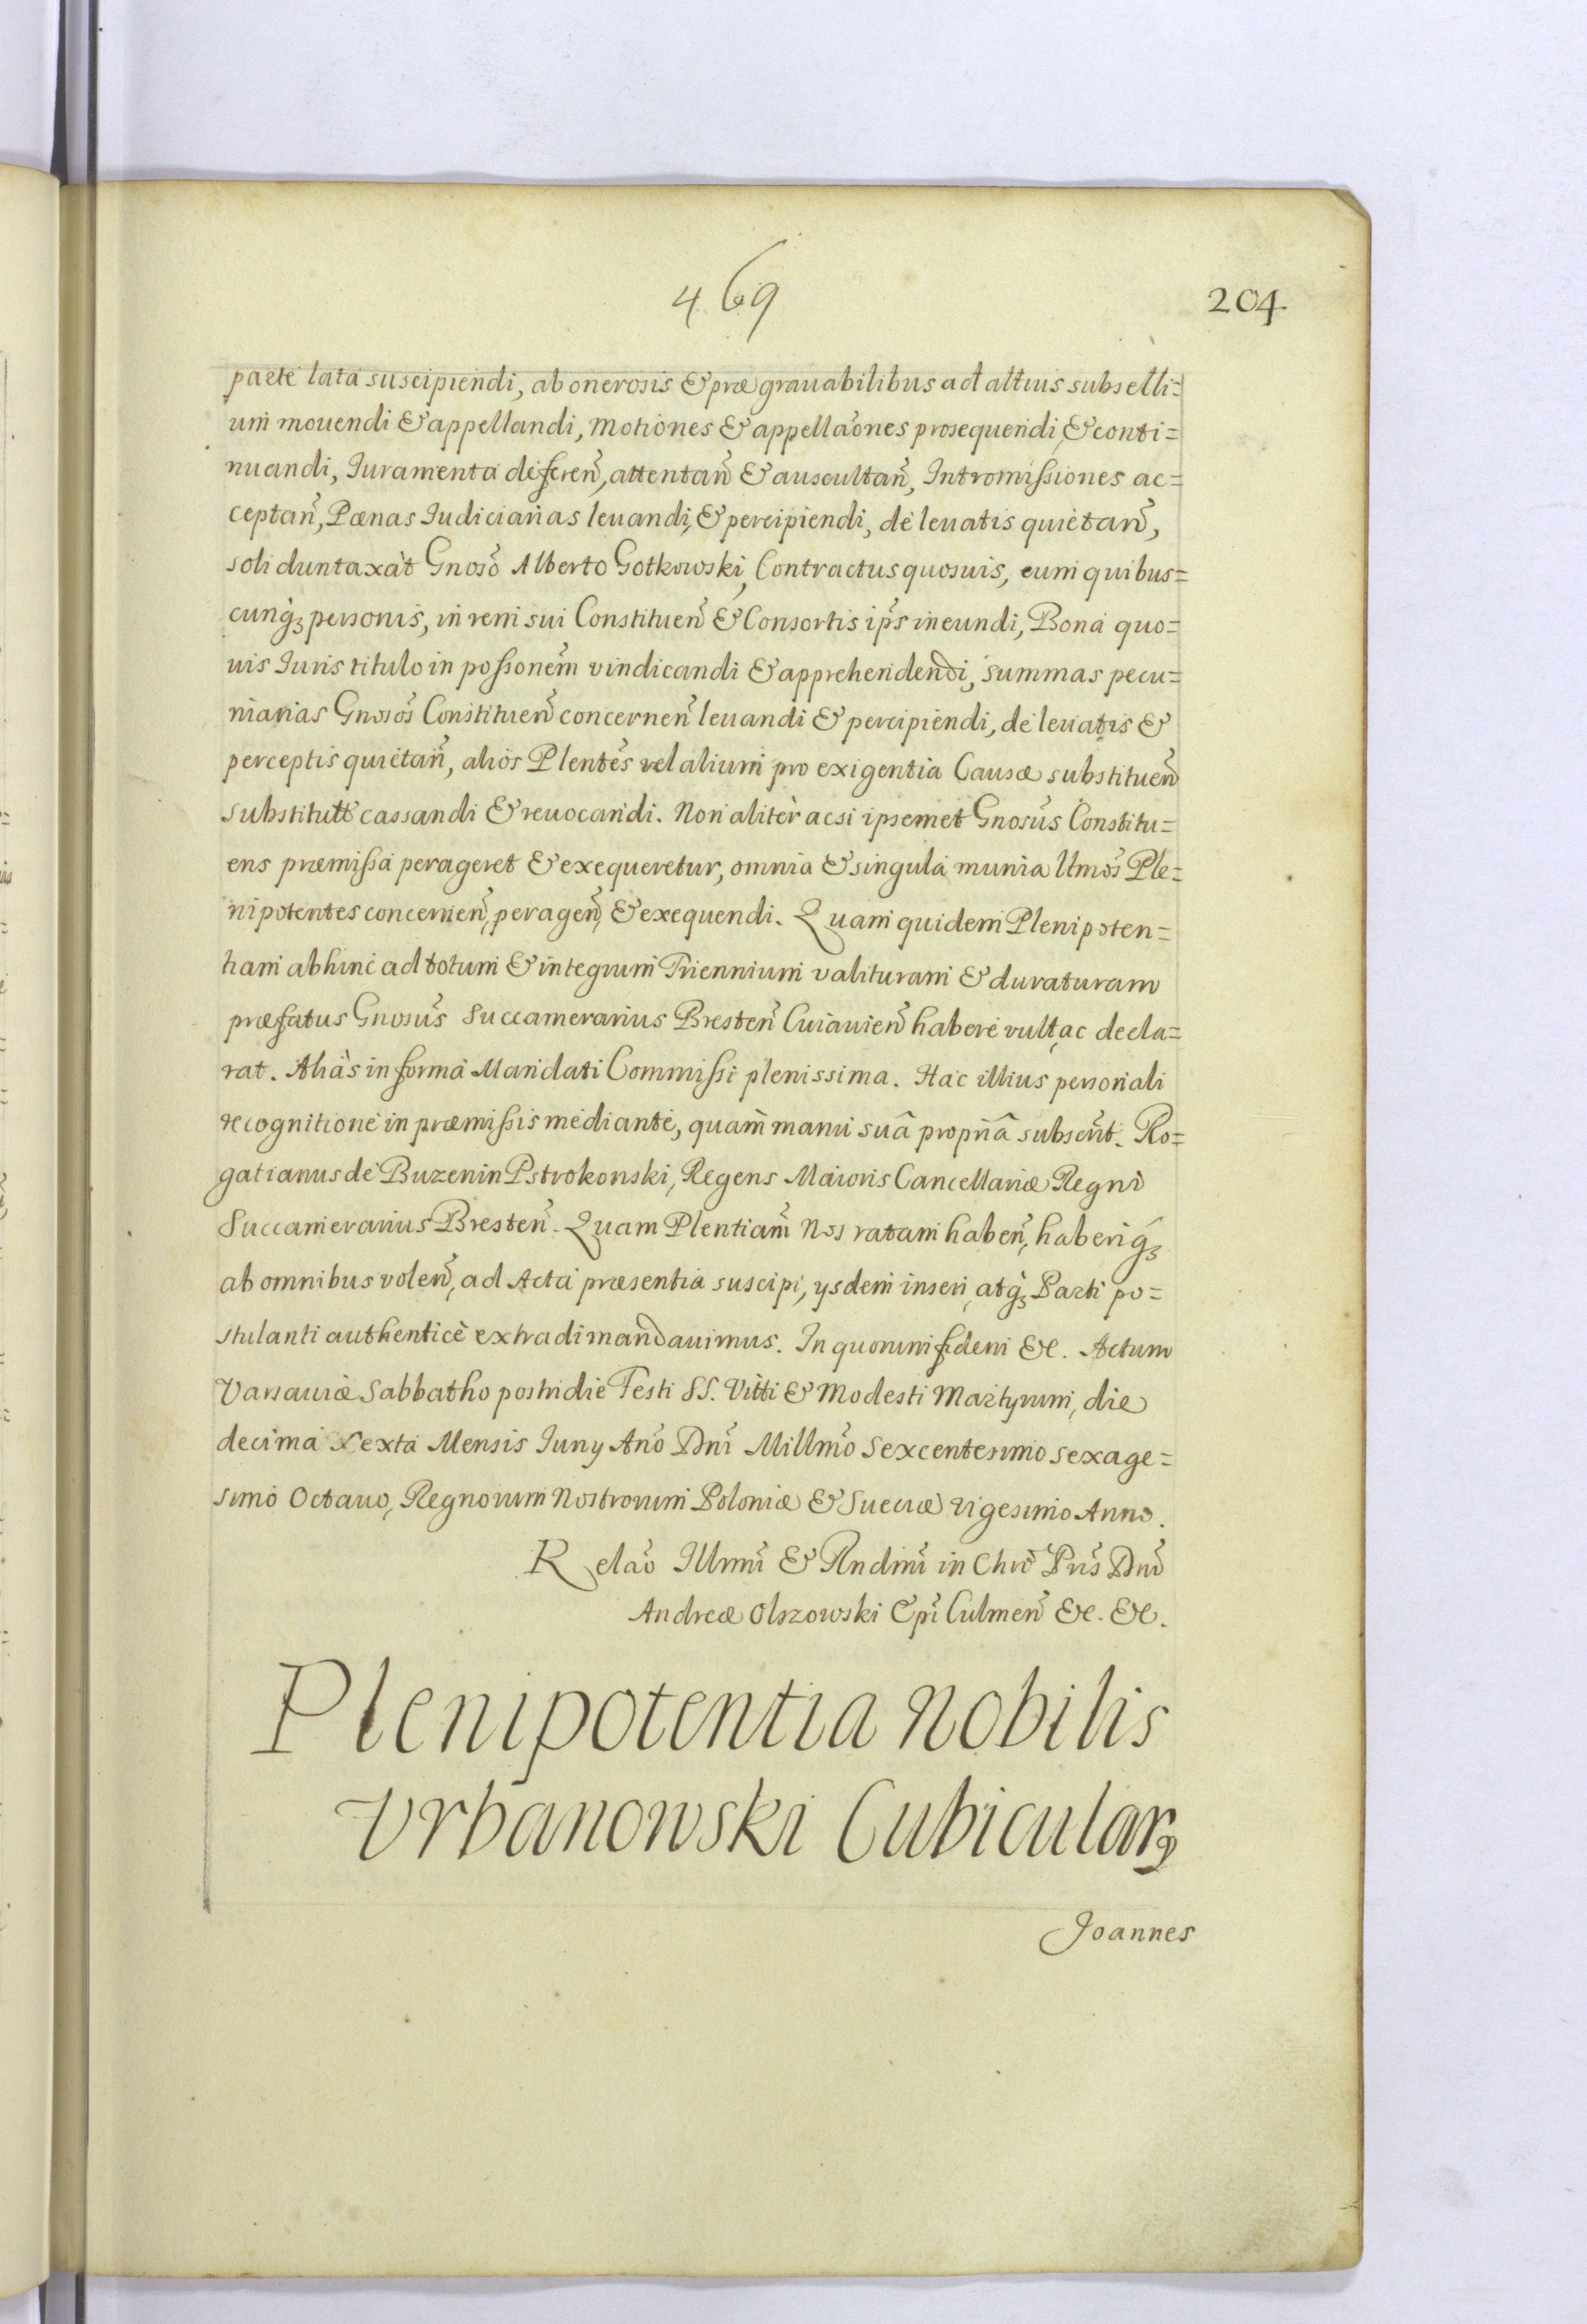 469
204.
parte lata suscipiendi, ab onerosis & prægrauabilibus ad altius subselli=
um mouendi & appellandi, motiones & appellaões prosequendi, & conti=
nuandi, Iuramenta deferen̄, attentan̄ & auscultan̄, Intromissiones ac=
ceptan̄, Pœnas Iudiciarias leuandi, & percipiendi, de leuatis quietan̄,
soli duntaxàt Gnosõ Alberto Gotkowski, Contractus quosuis, cum quibus=
cunq̃ personis, in rem sui Constituen̄ & Consortis ip̃s ineundi, Bona quo=
uis Iuris titulo in possionẽm vindicandi & apprehendendi, summas pecu=
niarias Gnosõs Constituen̄ concernen̄ leuandi & percipiendi, de leuatis &
perceptis quietan̄, alios Plentẽs vel alium pro exigentia Causæ substituen̄
substitutt cassandi & reuocandi. Non alitèr acsi ipsemet Gnosũs Constitu=
ens præmissa perageret & exequeretur, omnia & singula munia ltmõs Ple=
nipotentes concernen̄, peragen̄, & exequendi. Quam quidem Plenipoten=
tiam abhinc ad totum & integrum Triennium valituram & duraturam
præfatus Gnosũs Succamerarius Bresten̄ Cuiauien̄ habere vult, ac decla=
rat. Aliàs in forma Mandati Commissi plenissima. Hac illius personali
recognitione in præmissis mediante, quam̀ manu suâ propr̃iâ subscr̃t. Ro=
gatianus de Buzenin Pstrokonski, Regens Maioris Cancellariæ Regni
Succamerarius Bresten̄. Quam Plentiam̃ Nos ratam haben̄, haberiq̃
ab omnibus volen̄, ad Acta præsentia suscipi, ysdem inseri, atq̃ Parti po=
stulanti authenticè extradi mandauimus. In quorum fidem &c. Actum
Varsauiæ Sabbatho postridie Festi SS. Vitti & Modesti Martyrum, die
decima sexta Mensis Iuny Anõ Dnĩ Millmõ Sexcentesimo sexage=
simo Octauo, Regnorum Nostrorum Poloniæ & Sueciæ vigesimo Anno.
Relaõ Illmĩ & Rndmĩ in Chrõ Prĩs Dnĩ
Andreæ Olszowski Epĩ Culmen̄ &c. &c.
Plenipotentia Nobilis
Vrbanowski Cubicular,
Joannes